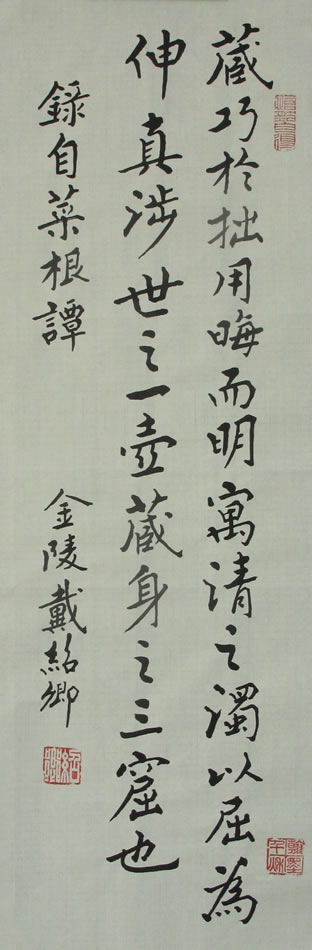 藏巧於拙用晦而明寓清之濁以屈為
伸真涉世之一壺藏身之三窟也
錄自菜根譚
金陵戴紹卿